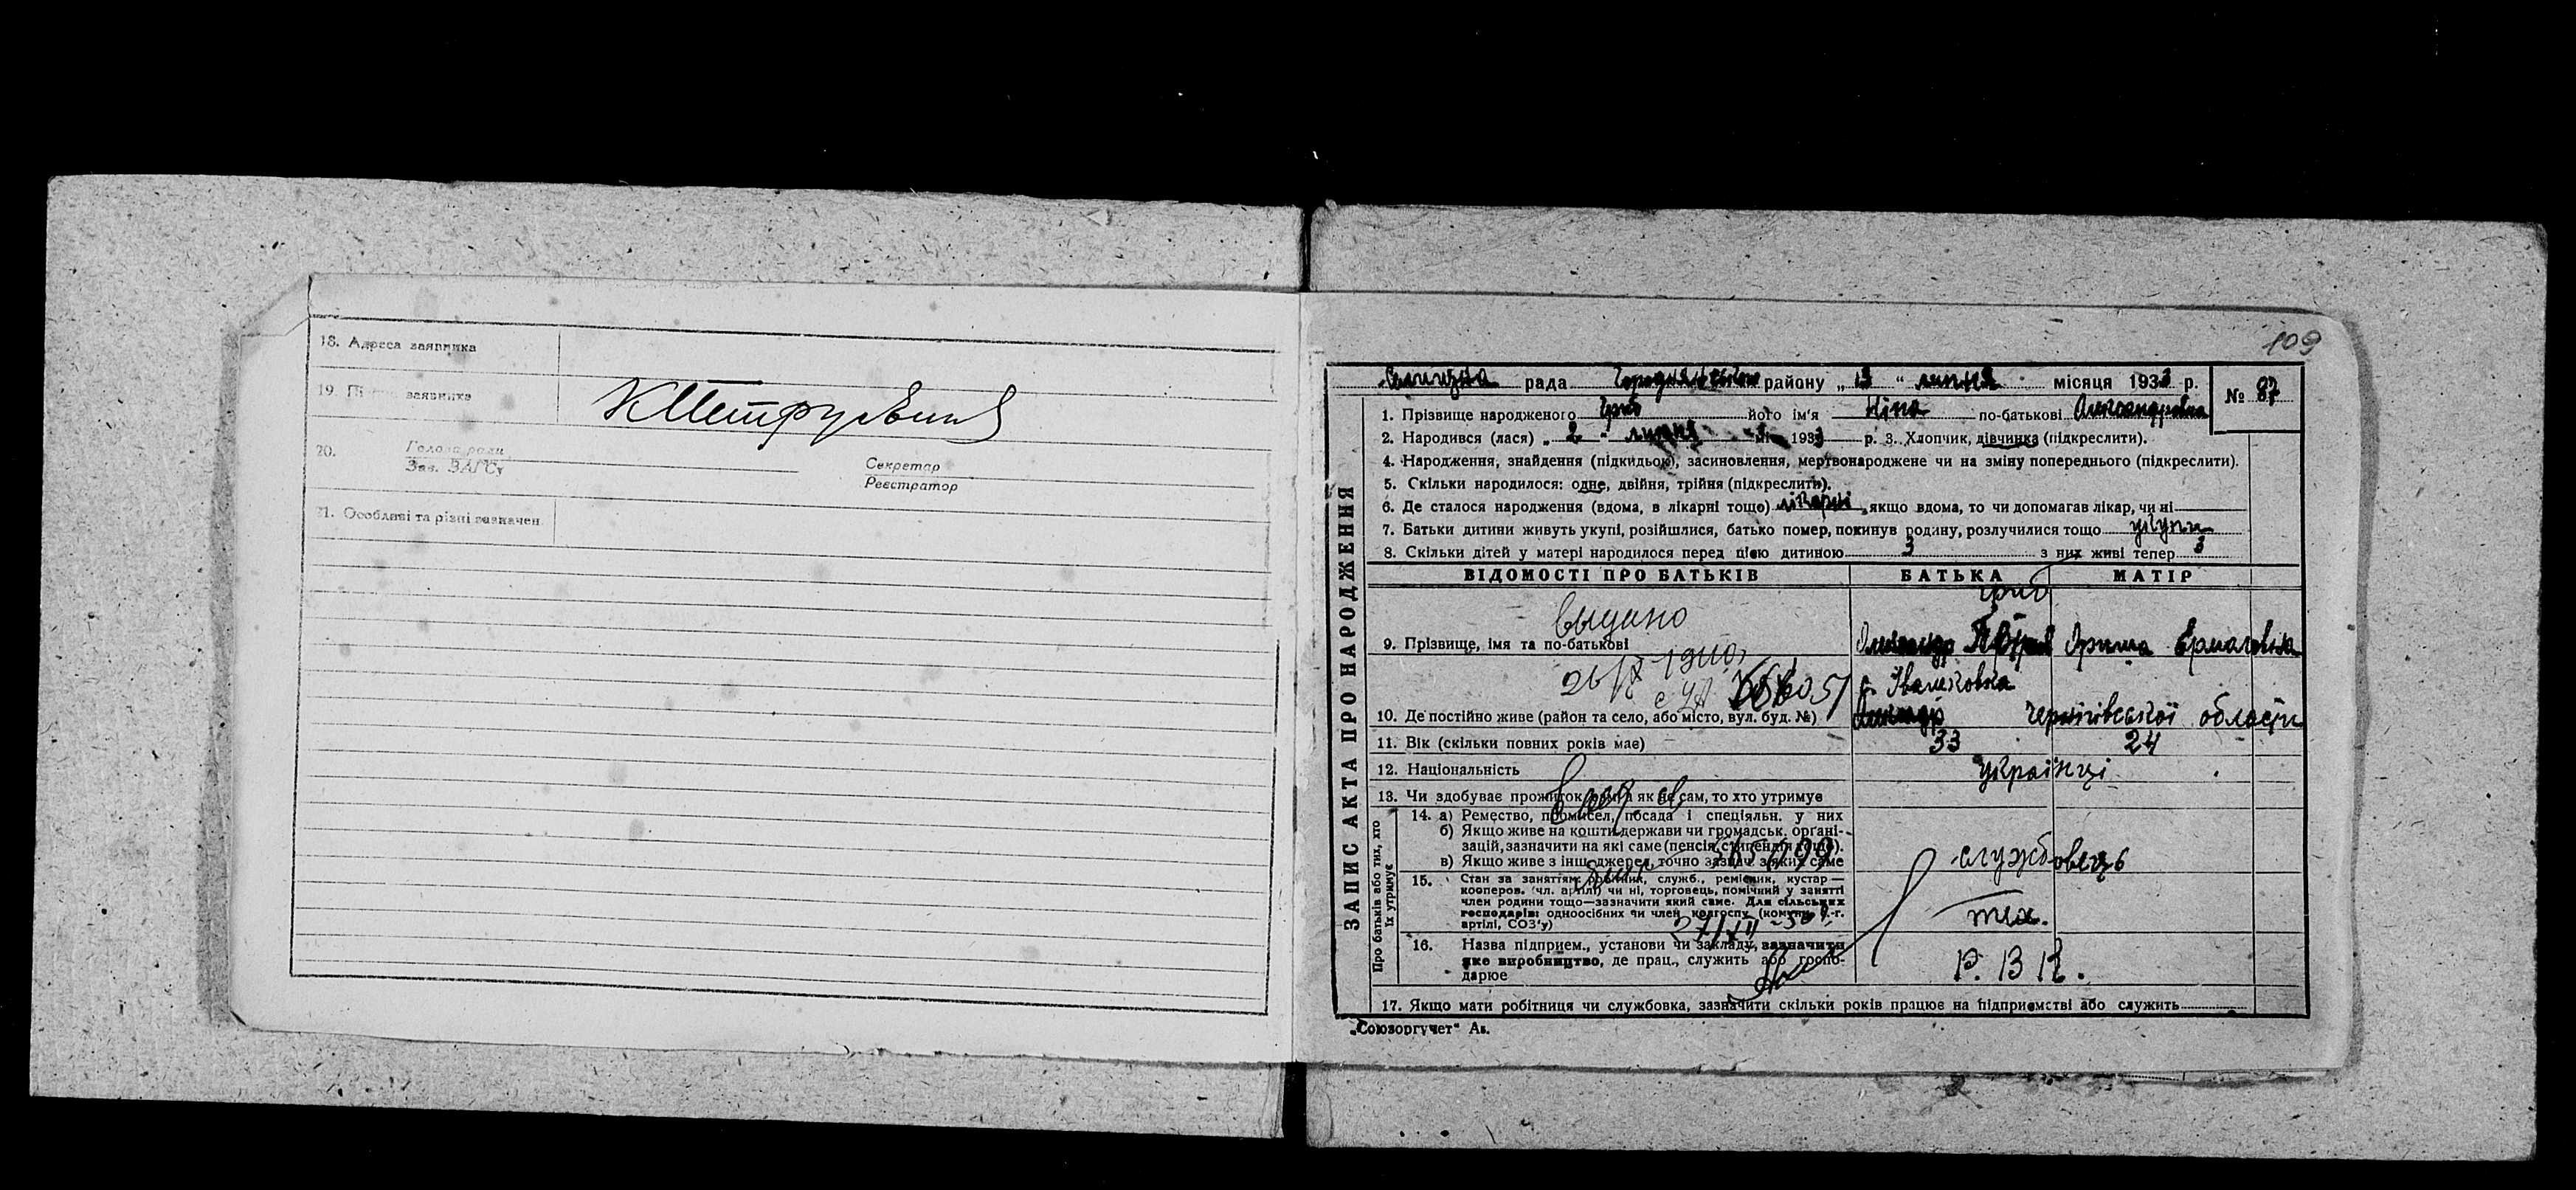 18. Адреса заявника
19. заявника
КПетруевич
20. Голова ради
Зав. ЗАГСу
Секретар
Реєстратор
21. Особливі та різні зазначен.
109
Селищна рада Городнянського району „13“ липня місяця 1933 р.
№ 87
1. Прізвище народженого Гриб його ім'я Ніна по-батькові Олександровна
2. Народився (лася) „2“ липня 1933 р. 3. Хлопчик, дівчинка (підкреслити).
4. Народження, знайдення (підкидьок), засиновлення, мертвонароджене чи на зміну попереднього (підкреслити).
5. Скільки народилося: одне, двійня, трійня (підкреслить).
6. Де сталося народження (вдома, в лікарні тощо) лікарні, якщо вдома, то чи допомагав лікар, чи ні
7. Батьки дитини живуть укупі, розійшлися, батько помер, покинув родину, розлучилися тощо укупи
8. Скільки дітей у матері народилося перед цією дитиною 3 з них живі тепер 3
ЗАПИС АКТА ПРО НАРОДЖЕННЯ
ВІДОМОСТІ ПРО БАТЬКІВ БАТЬКА МАТІР
Гриб
выдано
9. Прізвище, ім'я та по-батькові Олександр Орина Ермаговна
26/IX
с. Івашковка
10. Де постійно живе (район та село, або місто, вул. буд. №) Чернігівської області
11. Вік (скільки повних років має) 33 24
12. Національність українці
13. Чи здобуває прожиток сам, а як не сам, то хто утримує
Про батьків або тих, хто їх утримує
14. а) Ремество, промисел, посада і спеціяльн. у них
б) Якщо живе на кошти держави чи громадськ. організацій, зазначити на які саме (пенсія, стипендія тощо).
в) Якщо живе з інш. джерел, точно зазнач. з яких саме
службовець
15. Стан за заняттям: робітник, служб., ремісник, кустар—
кооперов. (чл. артілі) чи ні, торговець, помічний у занятті
член родини тощо—зазначити який саме. Для сільських
господарів: одноосібних чи член колгоспу (комуни, с.-г.
артілі, СОЗ'у)
16. Назва підприєм., установи чи закладу, зазначити
яке виробництво, де прац., служить або господарює
Р. В К.
17. Якщо мати робітниця чи службовка, зазначити скільки років працює на підприємстві або служить
„Союзоргучет“ Ав.